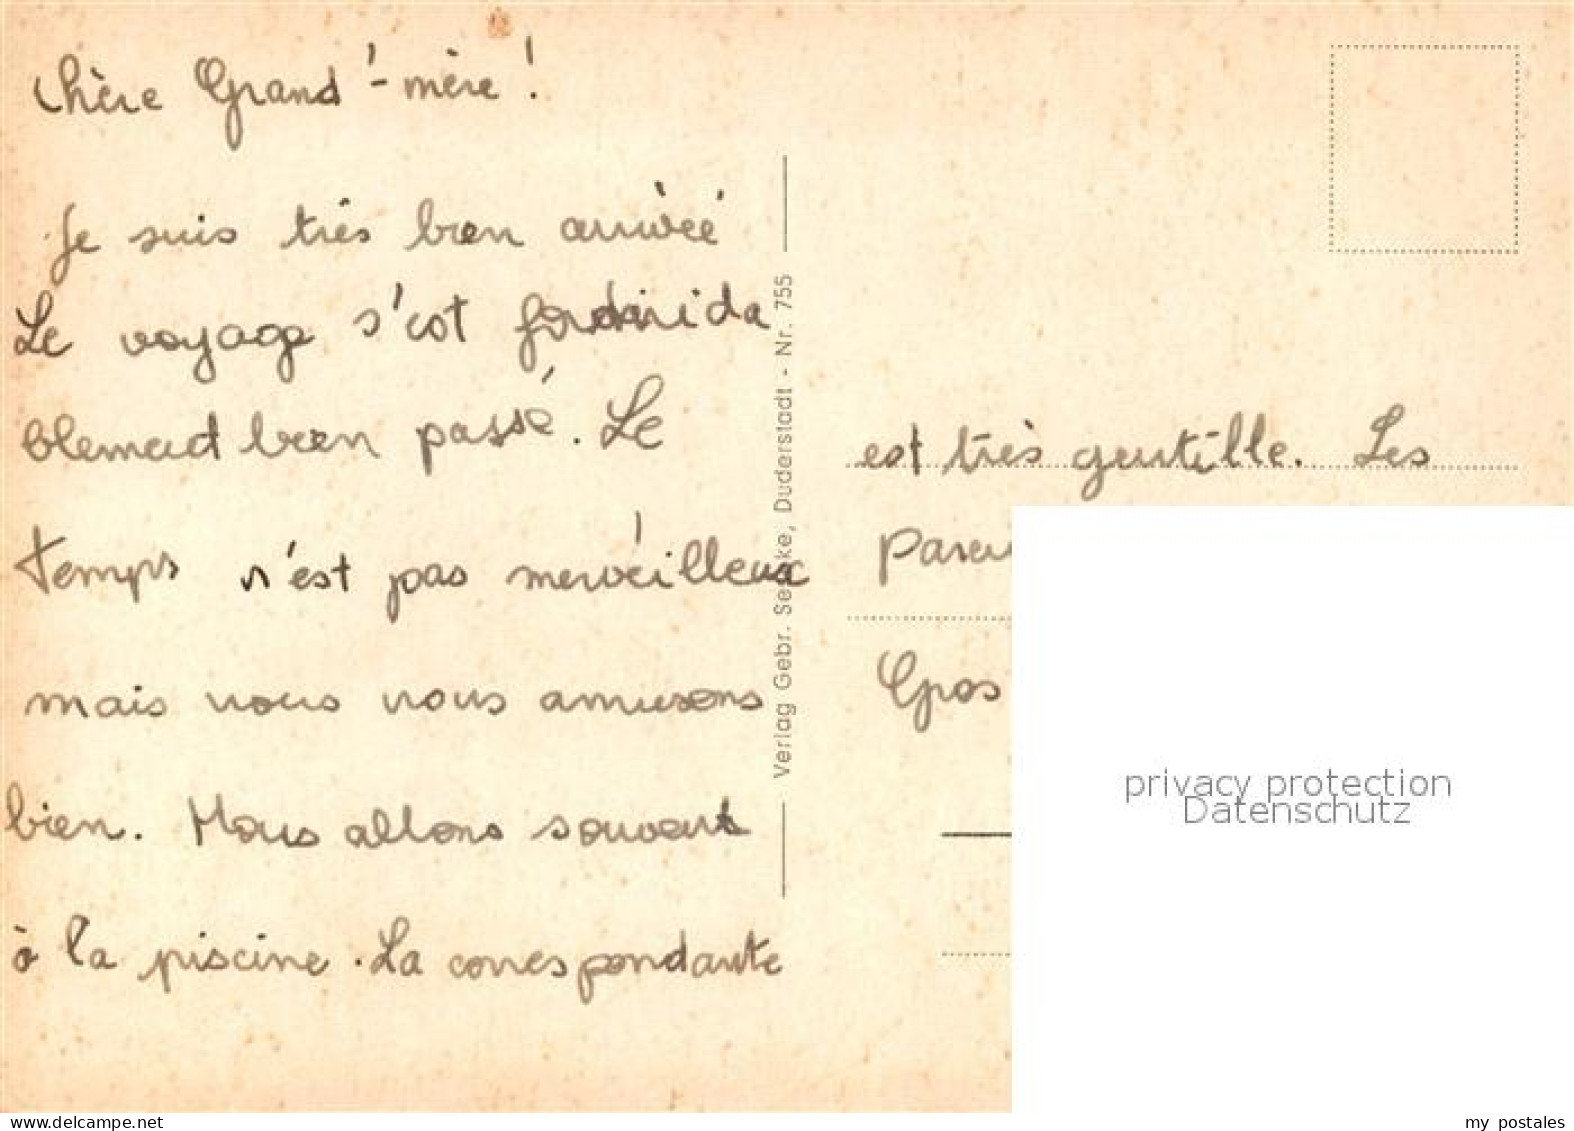 Chère Grand'-mère !
Je suis très bien arrivée
Le voyage s'est
blement bien passé. Le
temps n'est pas merveilleux
mais nous nous amusons
bien. Nous allons souvent
à la piscine. La correspondante
Verlag Gebr. Se ke, Duderstadt - Nr. 755
est très gentille. Les
Paren
Gros
privacy protection
Datenschutz
www.delcampe.net
my_postales